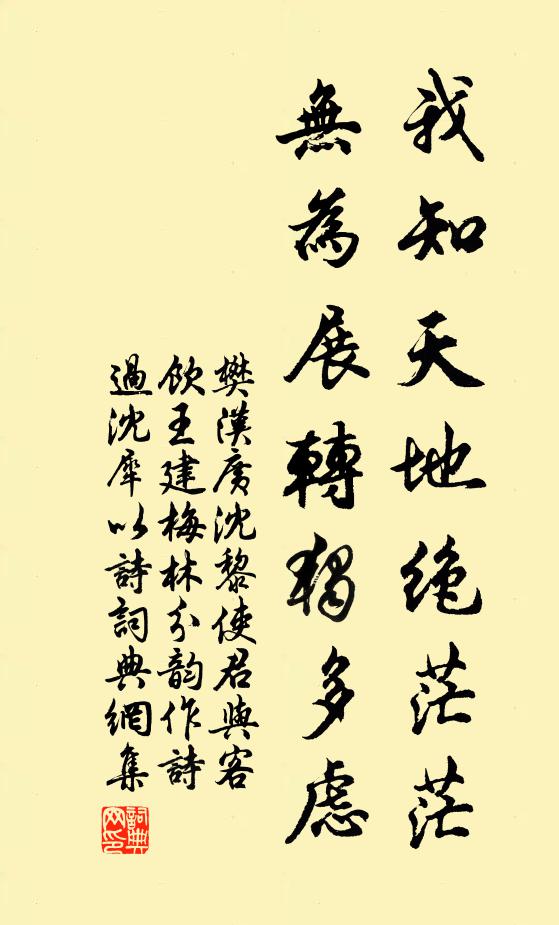 我知天地绝茫茫
無為展轉獨多慮
樊漢廣沈黎使君與客
飲王建梅林分韵作詩
過沈犀以詩詞典網集
詞典网印